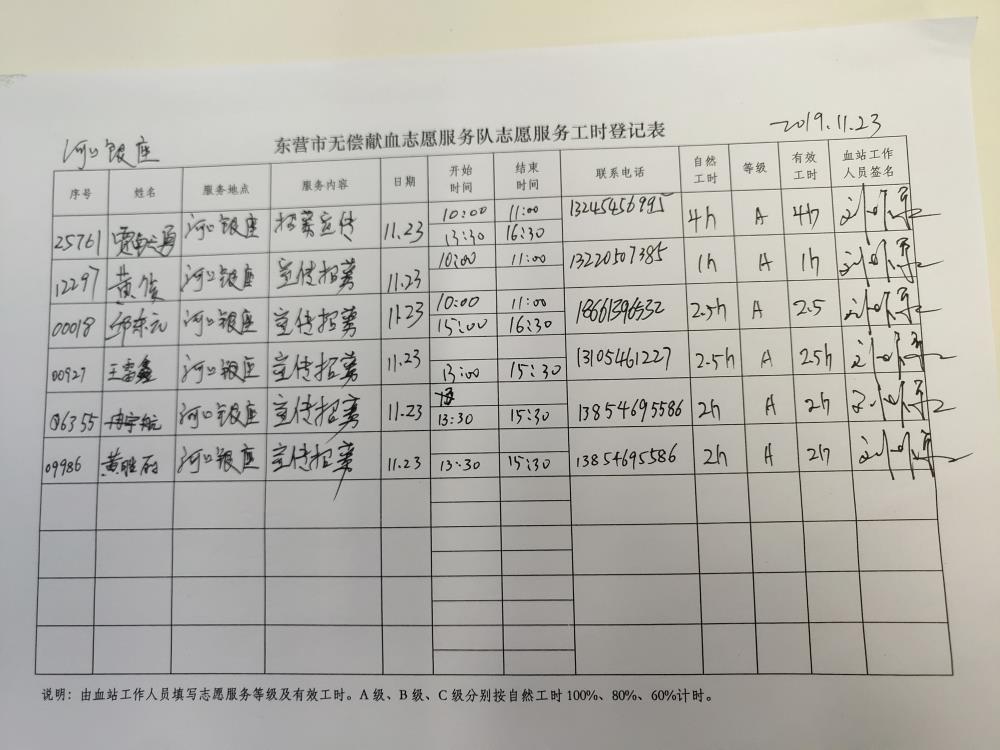 东营市无偿献血志愿服务队志愿服务工时登记表
2019.11.23
河口银座
序号 姓名 服务地点 服务内容 日期 开始时间 结束时间 联系电话 自然工时 等级 有效工时 血站工作人员签名
25761 河口银座 招募宣传 11.23 10:00 11:00 13245456995 4h A 4h
13:30 16:30
12297 黄俊 河口银座 宣传招募 11.23 10:00 11:00 13220507385 1h A 1h
00018 邱东元 河口银座 宣传招募 11.23 10:00 11:00 18661396532 2.5h A 2.5
15:00 16:30
00927 王雷鑫 河口银座 宣传招募 11.23 13:00 15:30 13105461227 2.5h A 2.5h
06355 冉宇航 河口银座 宣传招募 11.23 13:30 15:30 13854695586 2h A 2h
09986 黄胜雨 河口银座 宣传招募 11.23 13:30 15:30 13854695586 2h A 2h
说明：由血站工作人员填写志愿服务等级及有效工时。A 级、B 级、C 级分别按自然工时 100%、80%、60%计时。